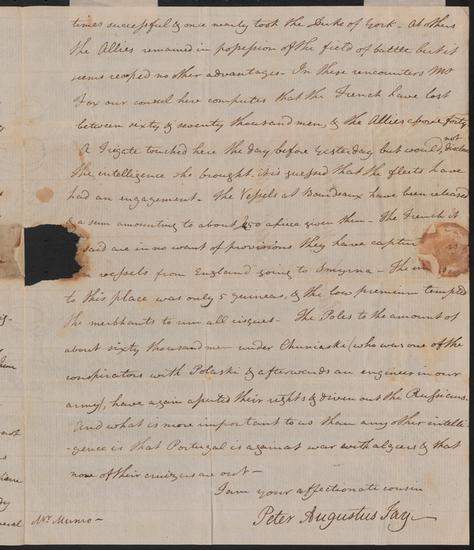 times successful & once nearly took the Duke of York - At others
the Allies remained in possession of the field of battle but it
seems reaped no other advantages - In these rencounters Mr
Fox our consul here computes that the French have lost
between sixty & seventy thousand men, & the Allies above forty
A Frigate touched here the day before yesterday but would not disclose
the intelligence she brought, it is guessed that the fleets have
had an engagement - The Vessels at Bourdeaux have been released
& a sum amounting to about £50 apiece given them - The French it
said are in no want of provisions they have captur
vessels from England going to Smyrna - The
to this place was only 5 guineas, & the low premium tempted
the merchants to run all risques - The Poles to the amount of
about sixty thousand men under (who was one of the
conspirators with Polaski & afterwards an engineer in our
army), have again asserted their rights & driven out the Russians.
And what is more important to us than any other intelli-
-gence is that Portugal is against war with algiers & that
none of their cruizers are out -
I am your affectionate cousin
Peter Augustus Jay -
Mr Munro -
not